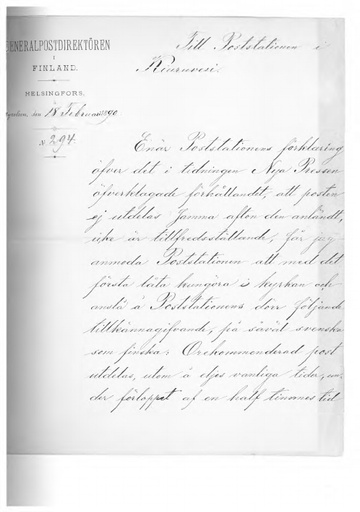 GENERALPOSTDIREKTÖREN
I
FINLAND.
HELSINGFORS,
den 18 Februari 1890
N 294.
Till Poststationen i
Kiuruvesi.
Enär Poststationens förklaring
öfver det i tidningen Nya Pressen
öfverklagade förhållandet, att posten
ej utdelas samma afton den anländt,
icke är tillfredsställande, får jag
anmoda Poststationen att med det
första låta kungöra i kyrkan och
anslå å Poststationens dörr följande
tillkännagifvande, på såväl svenska
som finska: Orekommenderad post
utdelas, utom å eljes vanliga tider, un-
der förloppet af en half timmes tid